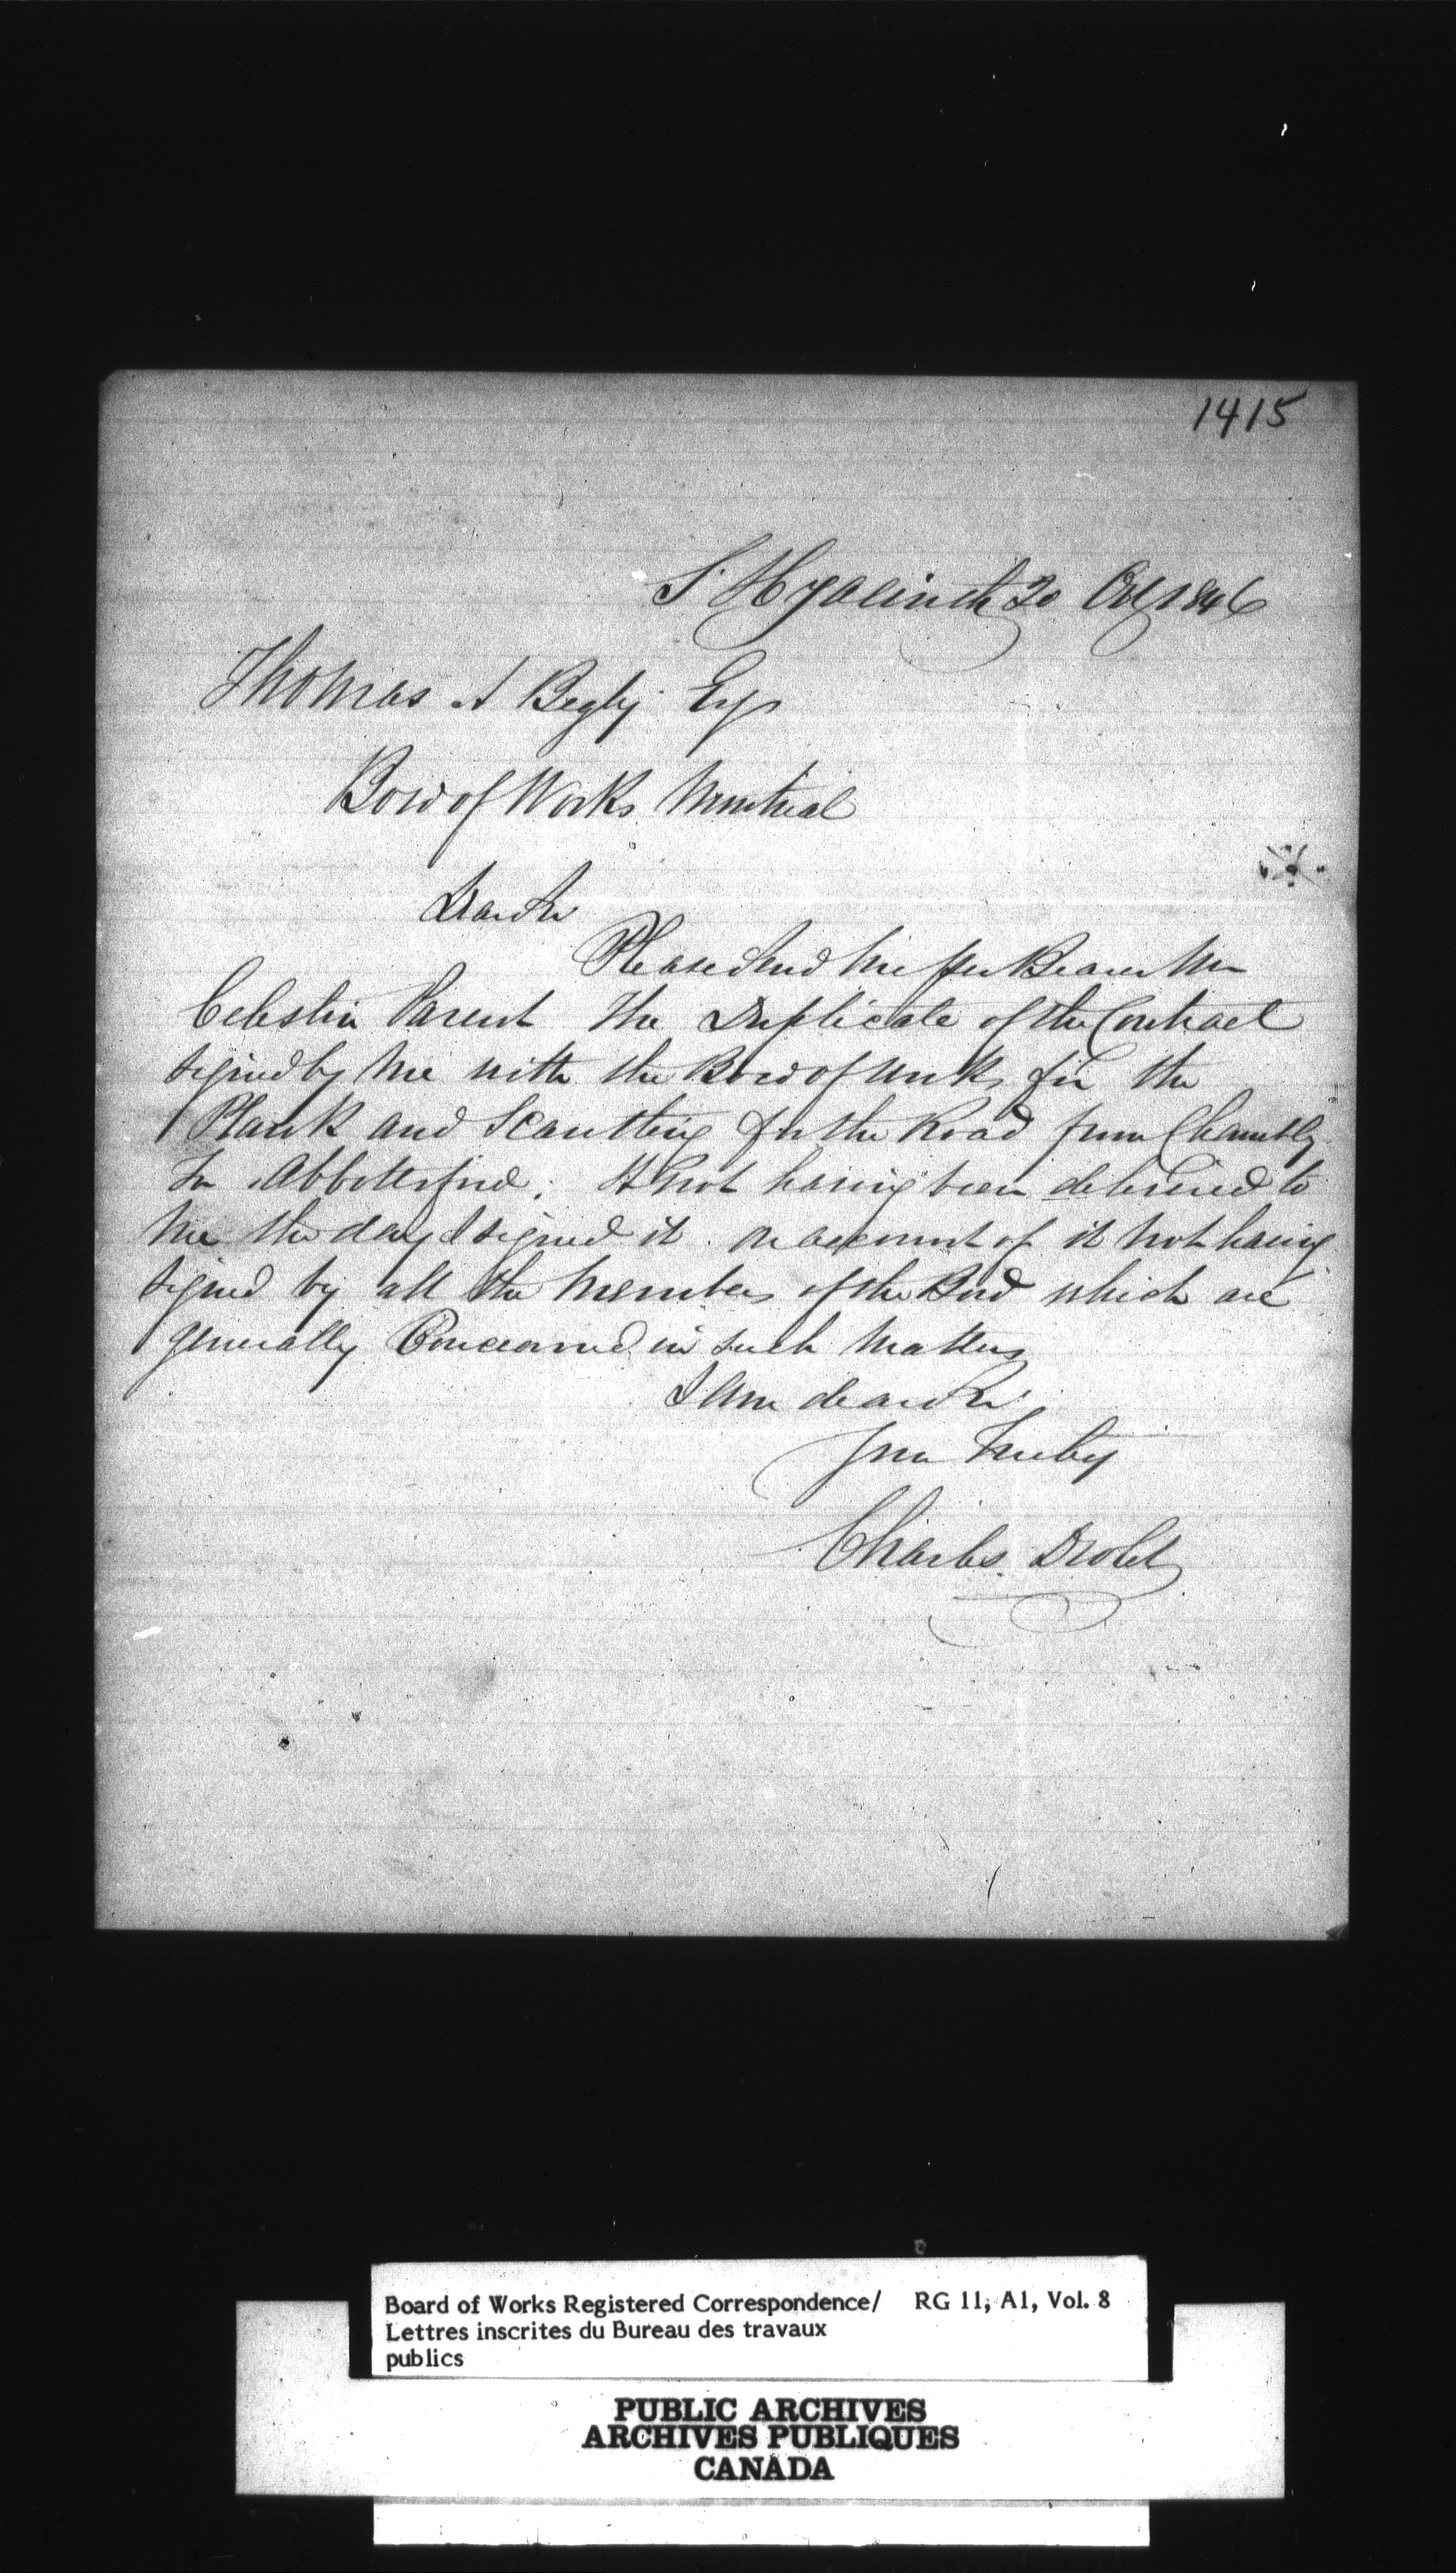 1415
St Hyacinth 20 Oct 1846
Thomas A Begly Esqr
Bord of Works Montreal
Dear Sir
Please Send me per Bearer Mr
Celestin Parent The Duplicate of the Contract
signed by me with the Bord of works for the
Plank and Scantling for the Road from Chambly
to Abbottsford. It not having been delivered to
me the day I signed it on account of it not having
signed by all the members of the Bord which are
generally Concerned in such matters
I am dear Sir
Your Truly
Charles Drolet
Board of Works Registered Correspondence/ RG 11, A1, Vol. 8
Lettres inscrites du Bureau des travaux
publics
PUBLIC ARCHIVES
ARCHIVES PUBLIQUES
CANADA